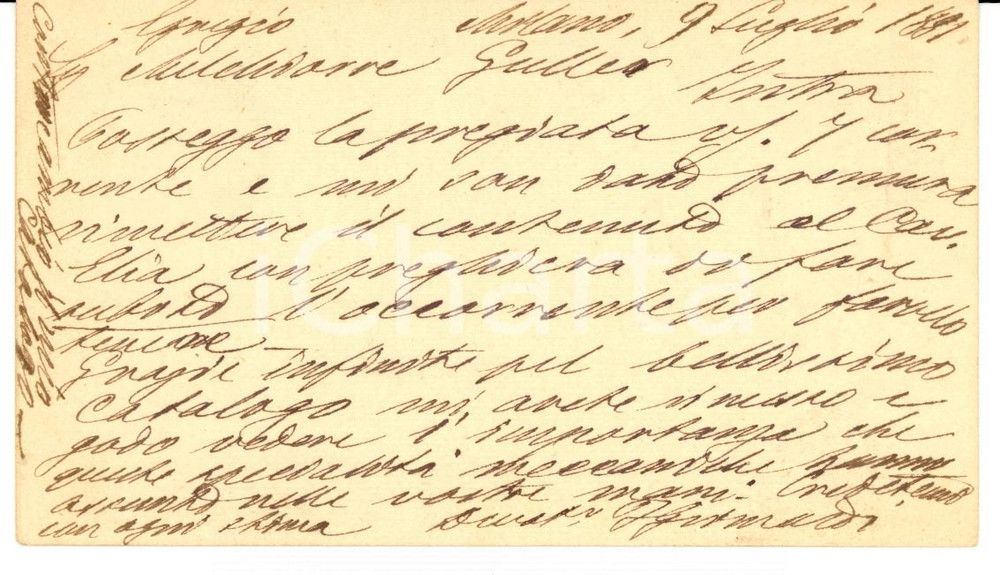 Egregio Milano, 9 Luglio 1881
Sig. Melchiorre Guller
Intra
Posseggo la pregiata vs. 7 cor-
rente e mi son dato premura
rimettere il contenuto al Cav.
Elia con preghiera di fare
subito l'occorrente per farvelo
tenere
Grazie infinite pel bellissimo
Catalogo mi avete rimesso e
godo vedere l'importanza che
queste specialità meccaniche hanno
assunto nelle vostre mani.
con ogni stima Devot.
iCharta